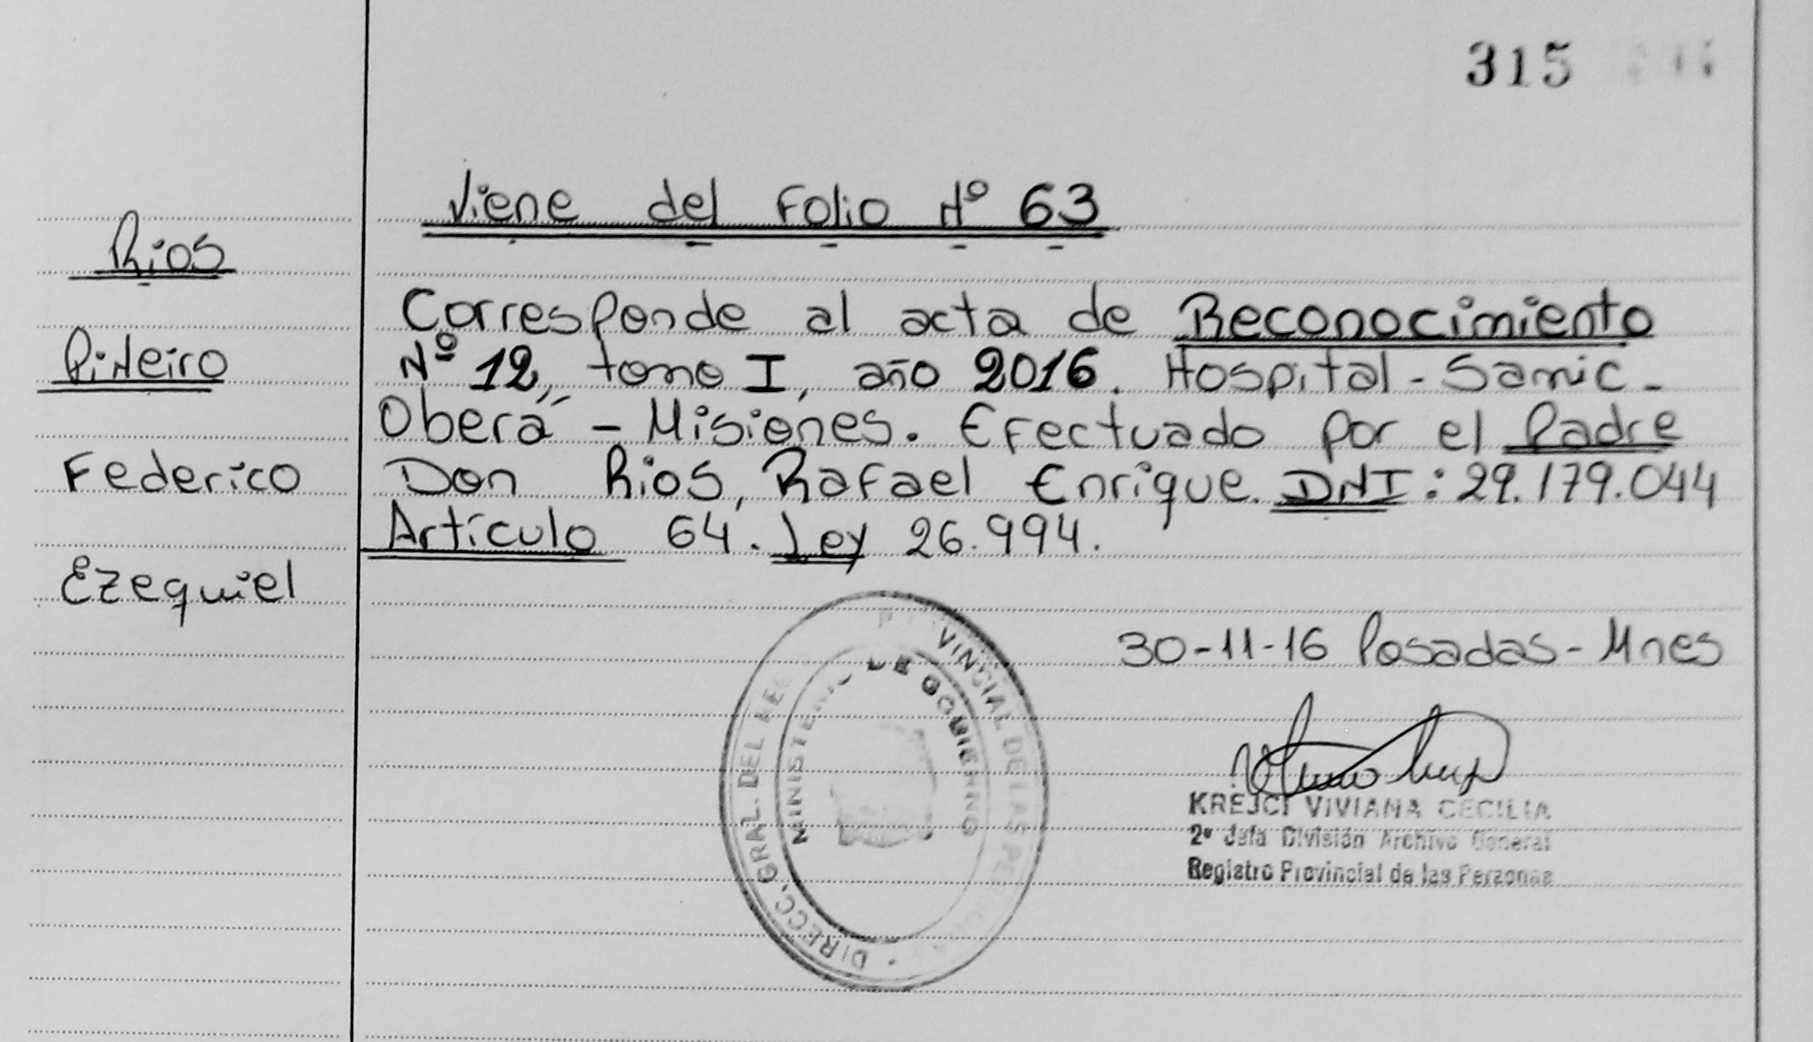 315
Viene del Folio Nº 63
Rios
Piñeiro
Federico
Ezequiel
Corresponde al acta de Reconocimiento
Nº 12, tomo I, año 2016. Hospital - Samic -
Oberá - Misiones. Efectuado por el Padre
Don Rios, Rafael Enrique. DNI: 29.179.044
Artículo 64. Ley 26.994.
30-11-16 Posadas - Mnes
DIRECC. GRAL. DEL VINCIAL DE LAS
MINISTERIO DE GOBIERNO
KREJCI VIVIANA CECILIA
2º Jefa División Archivo General
Registro Provincial de las Personas